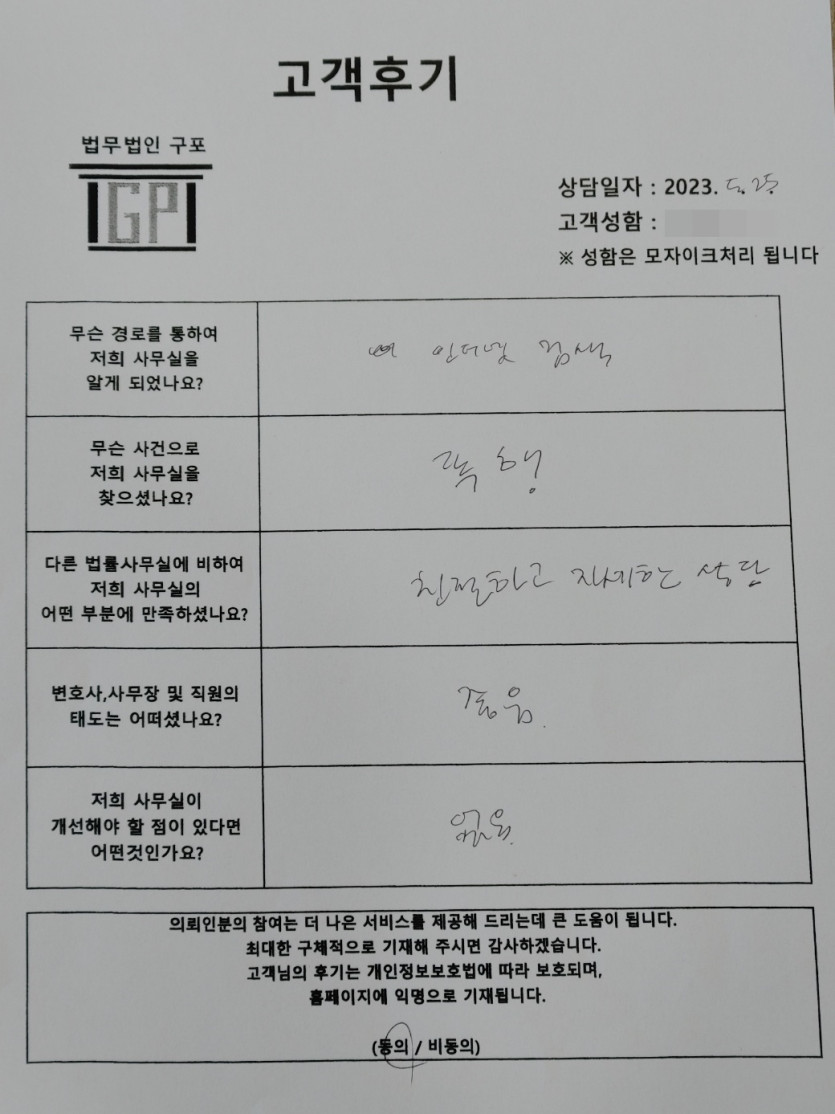 고객후기
법무법인 구포
GP
상담일자 : 2023. 5. 25
고객성함 :
※ 성함은 모자이크처리 됩니다
무슨 경로를 통하여
저희 사무실을
알게 되었나요?
인터넷 검색
무슨 사건으로
저희 사무실을
찾으셨나요?
폭행
다른 법률사무실에 비하여
저희 사무실의
어떤 부분에 만족하셨나요?
친절하고 자세한 상담
변호사,사무장 및 직원의
태도는 어떠셨나요?
좋음.
저희 사무실이
개선해야 할 점이 있다면
어떤것인가요?
없음.
의뢰인분의 참여는 더 나은 서비스를 제공해 드리는데 큰 도움이 됩니다.
최대한 구체적으로 기재해 주시면 감사하겠습니다.
고객님의 후기는 개인정보보호법에 따라 보호되며,
홈페이지에 익명으로 기재됩니다.
(동의 / 비동의)